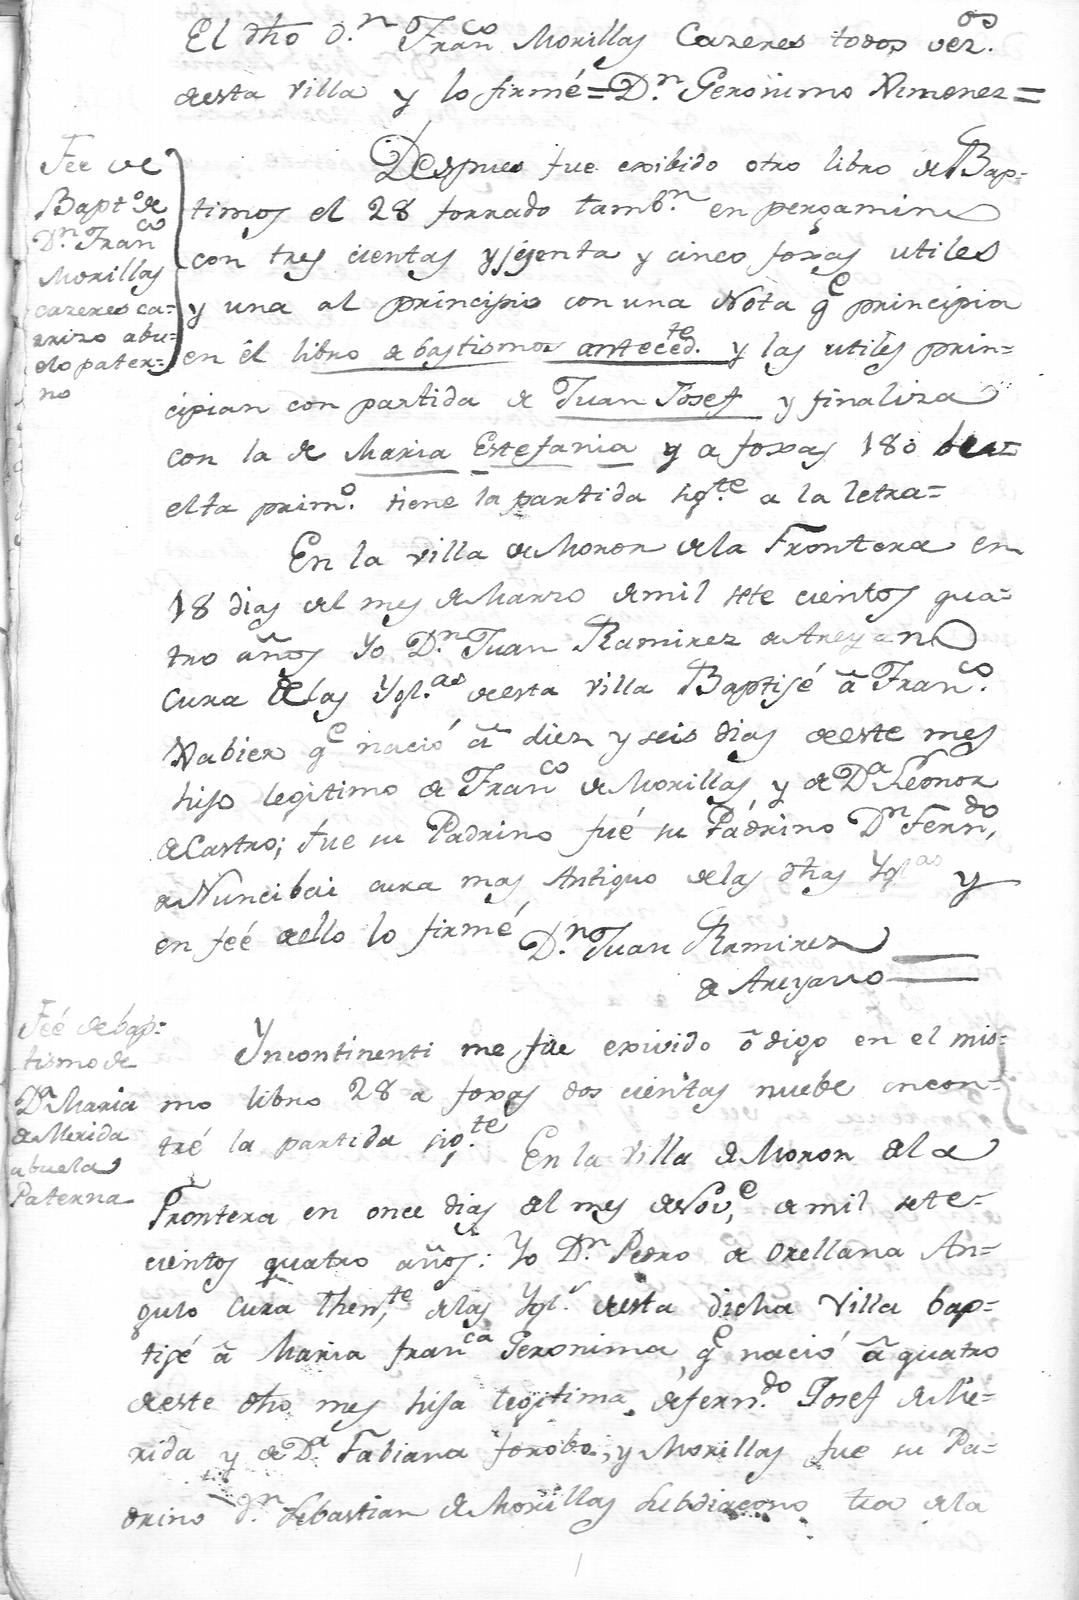 El dho d.n Fran.co Morillas Cazeres todos vez.os
de esta villa y lo firmé = D.n Geronimo Ximenez =
Fee de
Bapt.o de
D.n Fran.co
Morillas
cazeres ca-
rrizo abu-
elo pater-
no
Despues fue exibido otro libro de Bap-
timos el 28 forrado tamb.n en pergamino
con tres cientas y sesenta y cinco foxas utiles
y una al principio con una Nota q.e principia
en él libro de bastismos anteced.te y las utiles prin-
cipian con partida de Juan Josef y finaliza
con la de Maria Estefania y a foxas 180 bu-
elta prim.o tiene la partida sig.te a la letra =
En la villa de Moron de la Frontera en
18 dias del mes de Marzo de mil sete cientos qua-
tro años Yo D.n Juan Ramirez de Areyano
Cura de las Ygl.as de esta villa Baptisé â Fran.co
Xabier q.e nació â diez y seis dias de este mes
hijo legitimo de Fran.co de Morillas y de D.a Leonor
de Castro; fue su Padrino fué su Padrino D.n Fern.do
de Nuncibai cura mas Antiguo de las dhas Ygl.as y
en feé de ello lo firmé D.n Juan Ramirez
de Areyano =
Feé de bap-
tismo de
D.a Maria
de Merida
abuela
Paterna
Yncontinenti me fue exivido ô digo en el mis-
mo libro 28 a foxas dos cientas nuebe encon-
tré la partida sig.te En la villa de Moron de la
Frontera en once dias del mes de Nov.e de mil sete-
cientos quatro años: Yo D.n Pedro de Orellana An-
gulo Cura then.te de las Ygl.s de esta dicha Villa bap-
tisé â Maria fran.ca Geronima q.e nació â quatro
de este dho mes hija legitima de fern.do Josef de Me-
rida y de D.a Fabiana y Morillas fue su Pa-
drino D.n Sebastian de Morillas Subdiacono de la